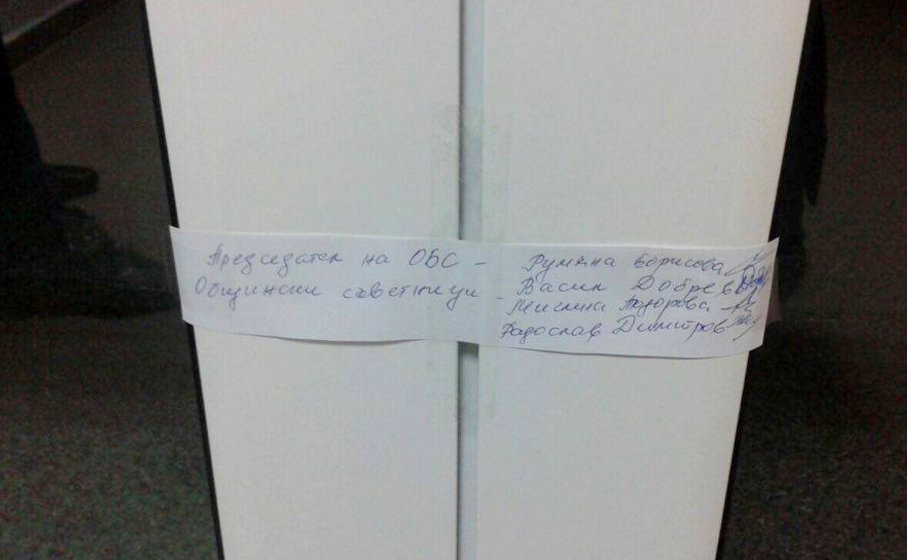 Председател на ОбС - Румяна Борисова
Общински съветници - Васил Добрев
Милена Тодорова -
Радослав Димитров